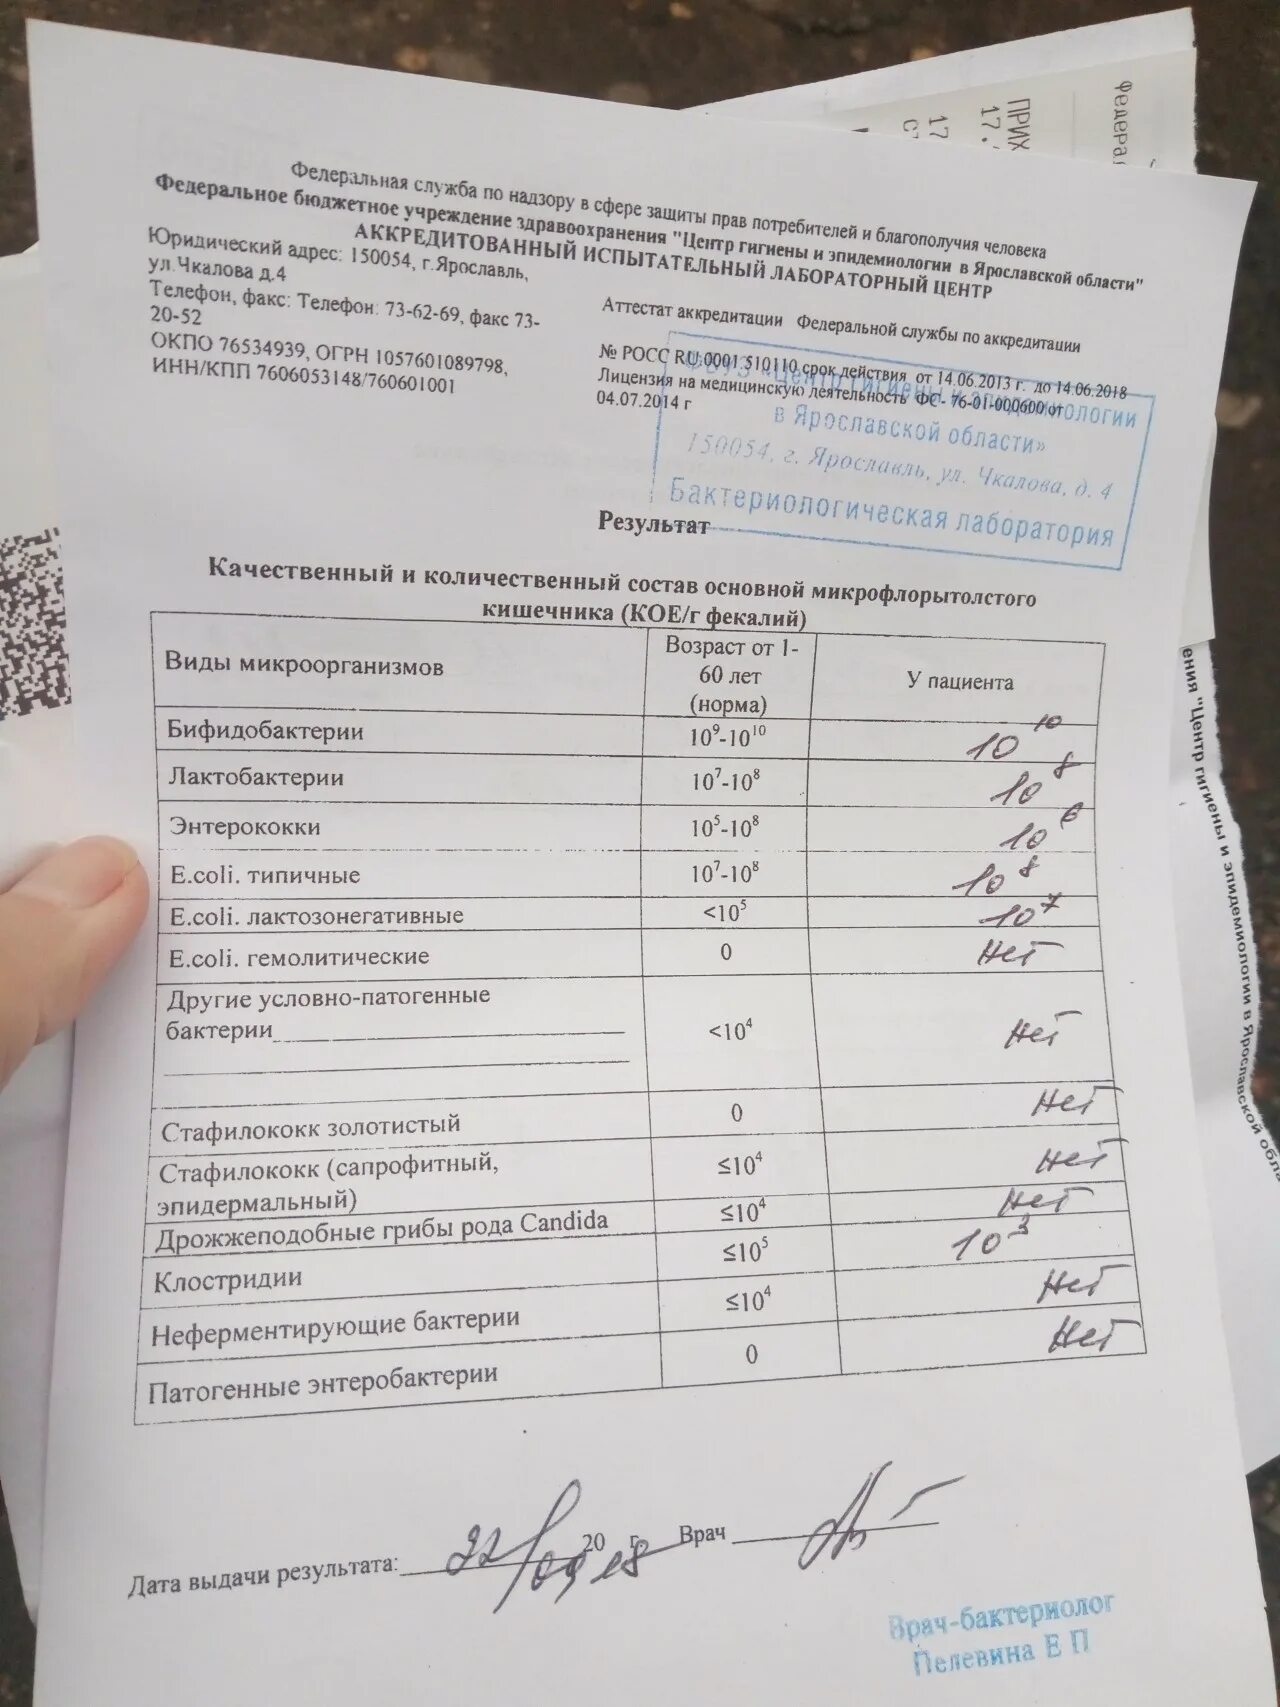 Федеральная служба по надзору в сфере защиты прав потребителей и благополучия человека
Федеральное бюджетное учреждение здравоохранения "Центр гигиены и эпидемиологии в Ярославской области"
АККРЕДИТОВАННЫЙ ИСПЫТАТЕЛЬНЫЙ ЛАБОРАТОРНЫЙ ЦЕНТР
Юридический адрес: 150054, г.Ярославль,
ул.Чкалова д.4
Телефон, факс: Телефон: 73-62-69, факс 73-
20-52
ОКПО 76534939, ОГРН 1057601089798,
ИНН/КПП 7606053148/760601001
Аттестат аккредитации Федеральной службы по аккредитации
№ РОСС RU.0001.510110 срок действия от 14.06.2013 г. до 14.06.2018
Лицензия на медицинскую деятельность ФС- 76-01-000600 от
04.07.2014 г
ФБУЗ «Центр гигиены и эпидемиологии
в Ярославской области»
150054, г. Ярославль, ул. Чкалова, д. 4
Бактериологическая лаборатория
Результат
Качественный и количественный состав основной микрофлорытолстого
кишечника (КОЕ/г фекалий)
Виды микроорганизмов Возраст от 1-60 лет (норма) У пациента
Бифидобактерии 10⁹-10¹⁰ 10¹⁰
Лактобактерии 10⁷-10⁸ 10⁸
Энтерококки 10⁵-10⁸ 10⁶
E.coli. типичные 10⁷-10⁸ 10⁸
E.coli. лактозонегативные <10⁵ 10⁷
E.coli. гемолитические 0 Нет
Другие условно-патогенные
бактерии <10⁴ Нет
Стафилококк золотистый 0 Нет
Стафилококк (сапрофитный,
эпидермальный) ≤10⁴ Нет
Дрожжеподобные грибы рода Candida ≤10⁴ Нет
Клостридии ≤10⁵ 10³
Неферментирующие бактерии ≤10⁴ Нет
Патогенные энтеробактерии 0 Нет
Дата выдачи результата: 20 г. Врач
Врач-бактериолог
Пелевина Е П
ПРИХ
17.
17
ения "Центр гигиены и эпидемиологии в Ярославской обла